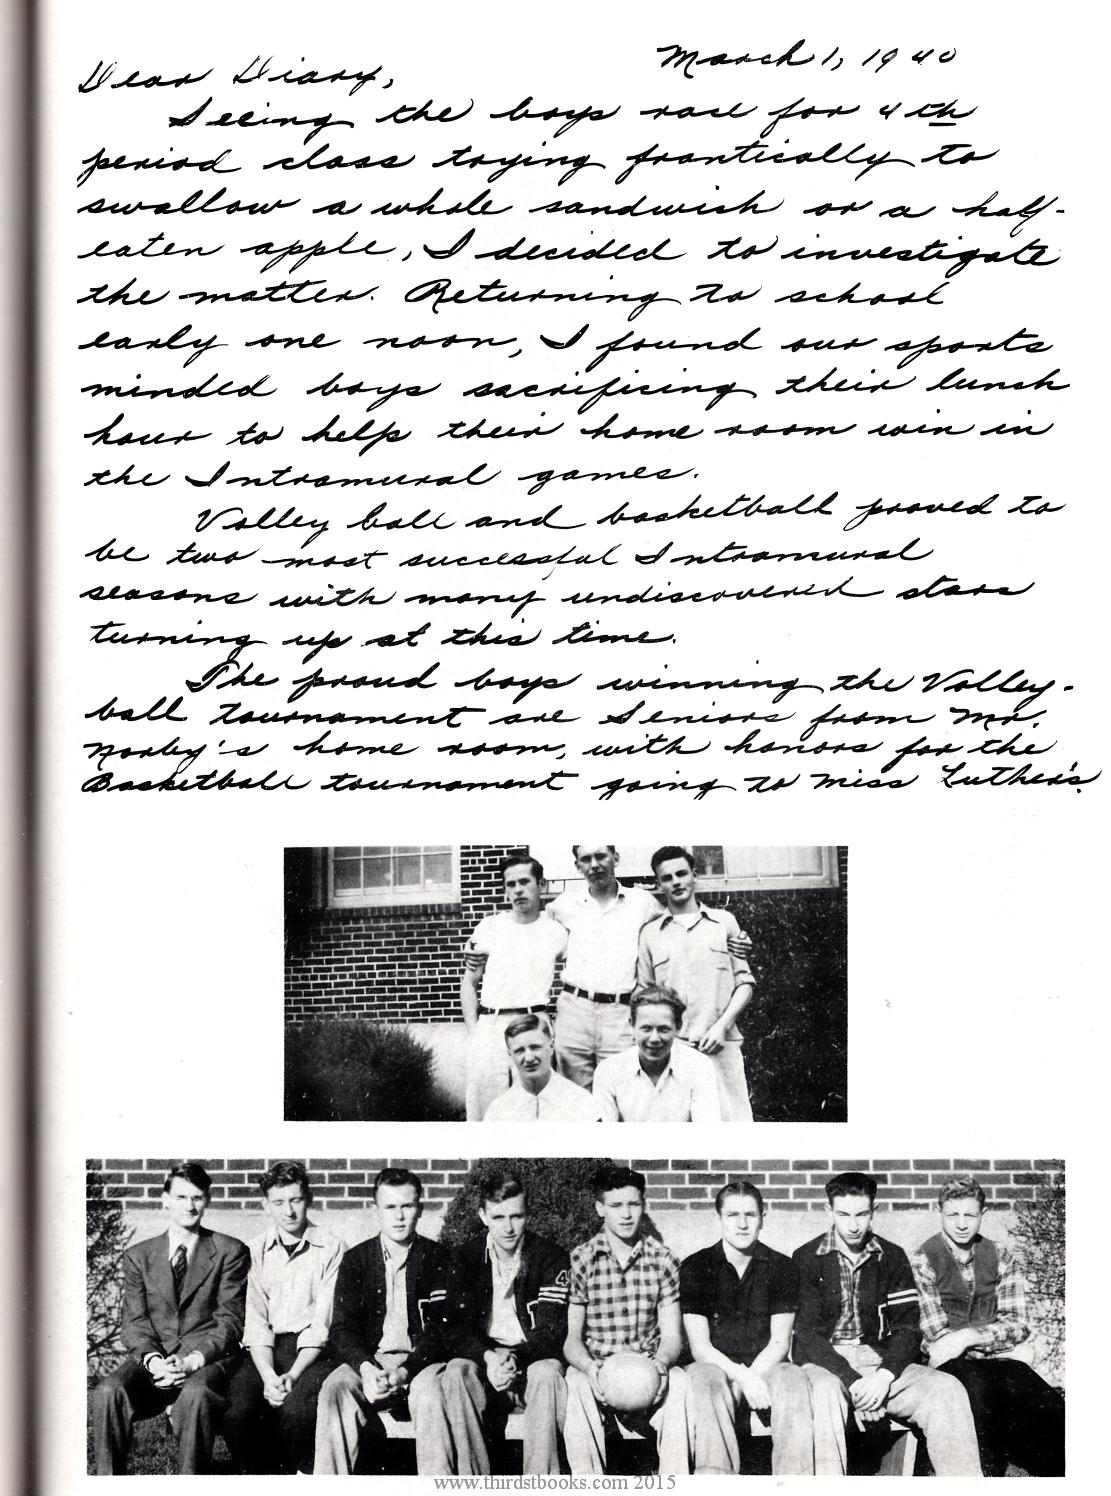 March 1, 1940
Dear Diary,
Seeing the boys race for 4th
period class trying frantically to
swallow a whole sandwich or a half-
eaten apple, I decided to investigate
the matter. Returning to school
early one noon, I found our sports
minded boys sacrificing their lunch
hour to help their home room win in
the Intramural games.
Volley ball and basketball proved to
be two most successful Intramural
seasons with many undiscovered stars
turning up at this time.
The proud boys winning the Volley-
ball tournament are Seniors from Mr.
Norby's home room, with honors for the
Basketball tournament going to Miss Luther's.
4
www.thirdstbooks.com 2015